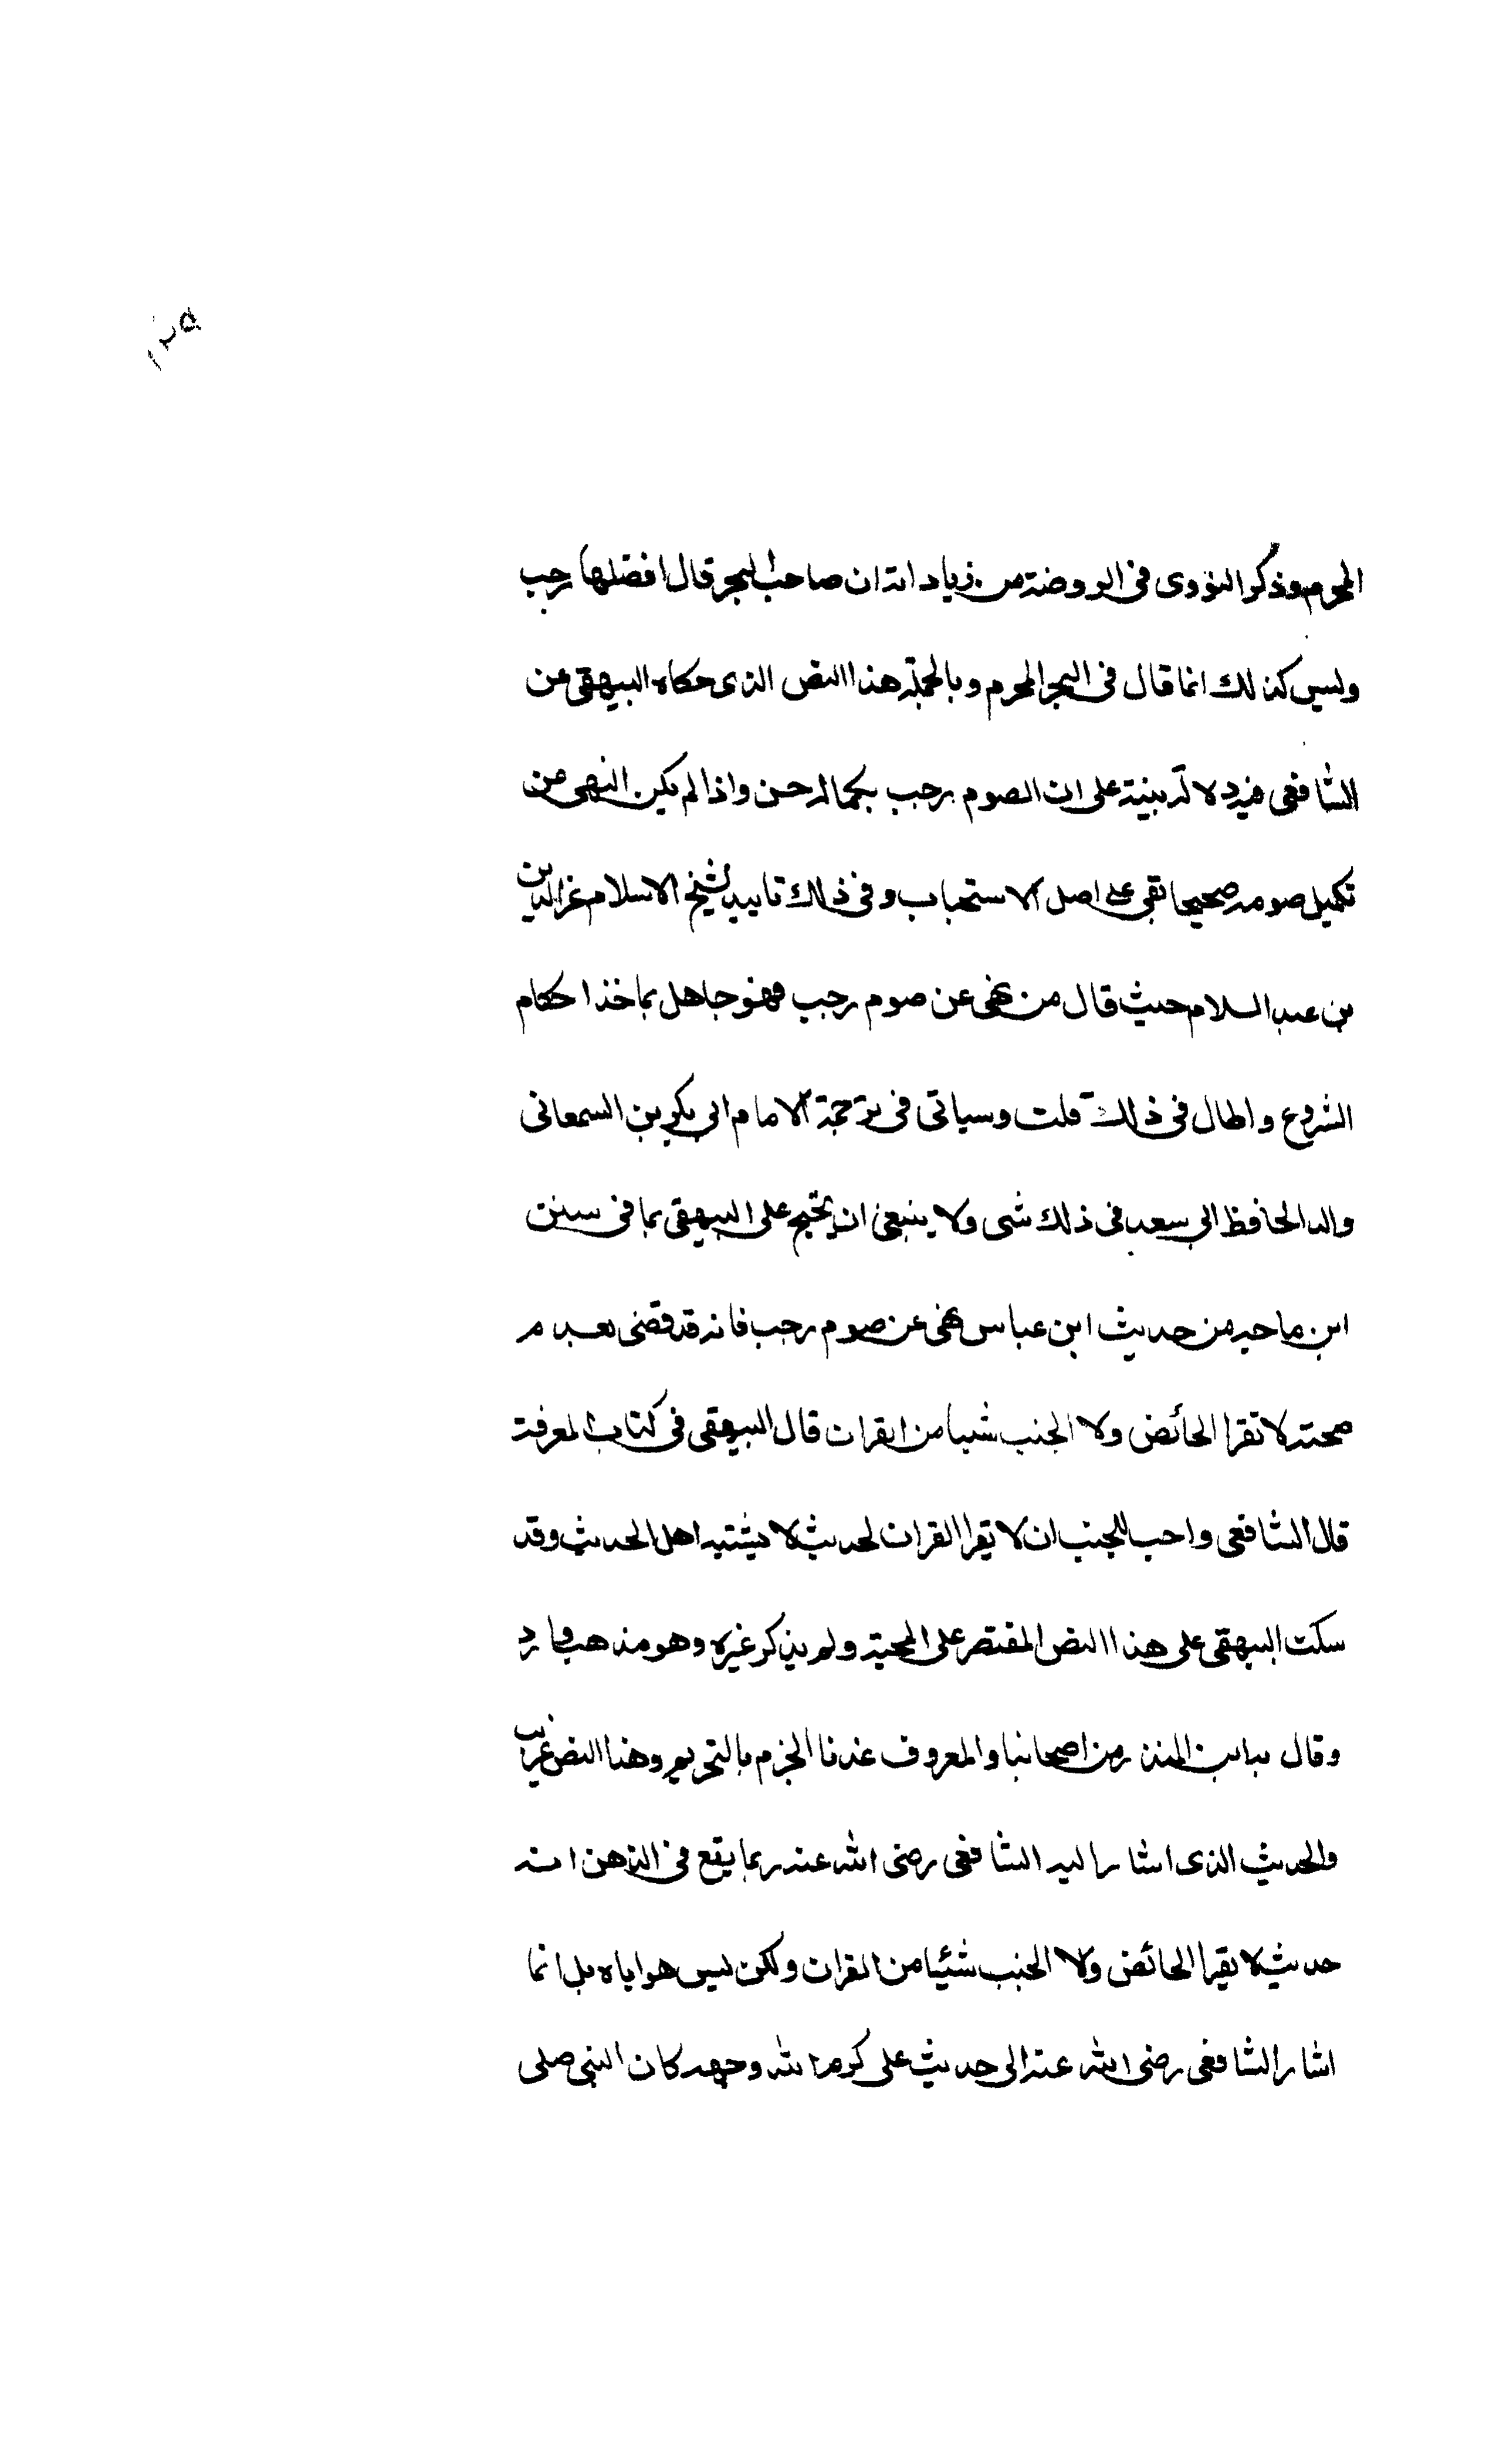 المحرم وذكر النووى فى الروضة من زياداته ان صاحب البحر قال افضلها رجب
وليس كذلك انما قال فى البحر المحرم وبالجملة هذا النص الذى حكاه البيهقى عن
الشافعى فيه دلالة بينة على ان الصوم رجب بكماله حسن واذا لم يكن النهى عن
تكميل صومه صحيحا بقى على اصل الاستحباب وفى ذلك تاييد لشيخ الاسلام عز الدين
بن عبد السلام حيث قال من نهى عن صوم رجب فهو جاهل بماخذ احكام
الشرع واطال فى ذلك قلت وسياتى فى ترجمة الامام ابى بكر بن السمعانى
والد الحافظ ابى سعد فى ذلك شى ولا ينبغى ان يحتج على البيهقى بما فى سنن
ابن ماجه من حديث ابن عباس نهى عن صوم رجب فانه قد قضى بعدم
صحته لا تقرا الحائض ولا الجنب شيا من القران قال البيهقى فى كتاب المعرفة
قال الشافعى واحب للجنب ان لا يقرا القران لحديث لا يثبته اهل الحديث وقد
سكت البيهقى على هذا النص المقتصر على المحبة ولم يذكر غيره وهو مذهب داود
وقال به ابن المنذر من اصحابنا والمعروف عندنا الجزم بالتحريم وهذا النص غريب
والحديث الذى اشار اليه الشافعى رضى الله عنه ربما يقع فى الذهن انه
حديث لا يقرا الحائض ولا الجنب شئيا من القران ولكن ليس هو اياه بل انما
اشار الشافعى رضى الله عنه الى حديث على كرم الله وجهه كان النبى صلى